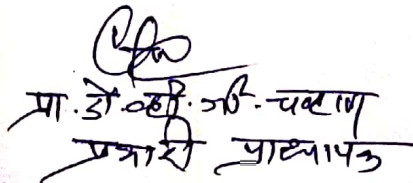 प्रा. डॉ. व्ही. जी. चव्हाण
प्रभारी प्राध्यापक